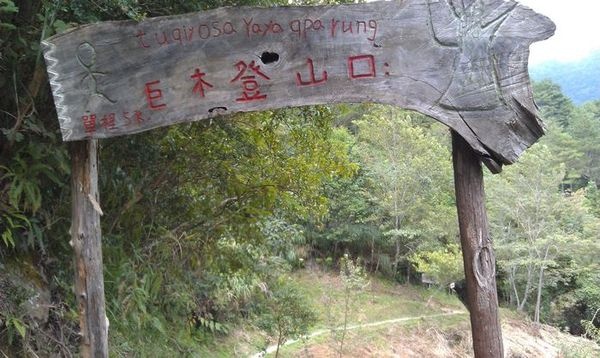 tuqirosa Yaya qparung
巨木登山口:
單程5K